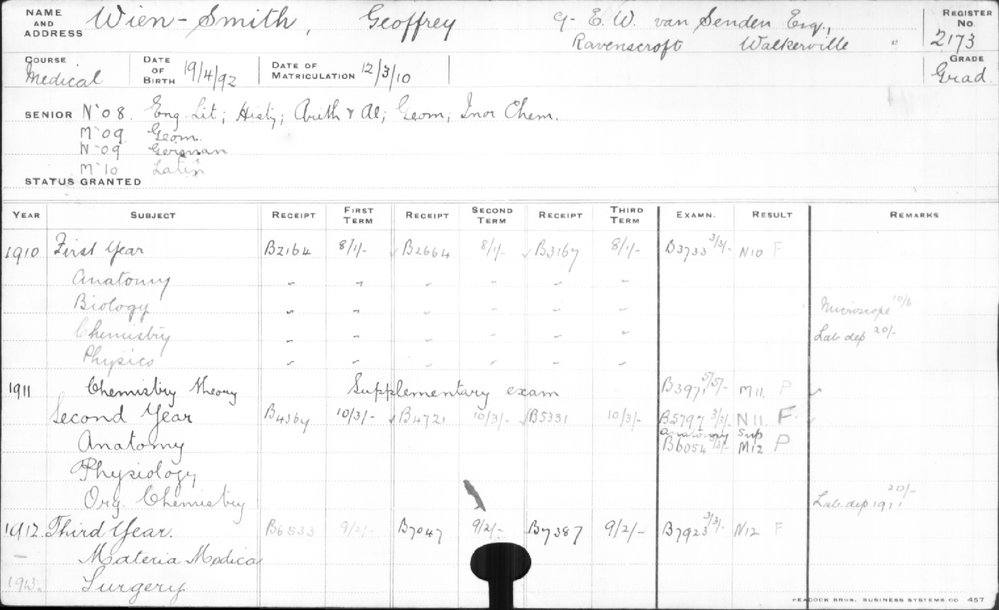 NAME AND ADDRESS Wien-Smith, Geoffrey c/- E. W. van Senden Esq., REGISTER No.
Ravenscroft Walkerville 2173
COURSE Medical DATE OF BIRTH 19/4/92 DATE OF MATRICULATION 12/3/10 GRADE Grad.
SENIOR N'08. Eng. Lit; Histy; Arith & Al; Geom; Inor Chem.
M'09 Geom.
N'09 German
M'10 Latin
STATUS GRANTED
YEAR SUBJECT RECEIPT FIRST TERM RECEIPT SECOND TERM RECEIPT THIRD TERM EXAMN. RESULT REMARKS
1910 First Year B2164 8/1/- B2664 8/1/- B3167 8/1/- B3733 3/3/- N10 F
Anatomy " " " " " "
Biology " " " " " " Microscope 10/6
Chemistry " " " " " " Lab. dep 20/-
Physics " " " " " "
1911 Chemistry theory Supplementary exam B3971 5/5/- M11. P
Second Year B4364 10/3/- B4721 10/3/- B5331 10/3/- B5797 3/3/- N11. F
Anatomy Anatomy Sup B6054 M12 P
Physiology
Org. Chemistry Lab. dep 1911 20/-
1912 Third Year. B6533 9/2/- B7047 9/2/- B7387 9/2/- B7923 3/3/- N12 F
— Materia Medica
1913. Surgery
PEACOCK BROS. BUSINESS SYSTEMS CO 457